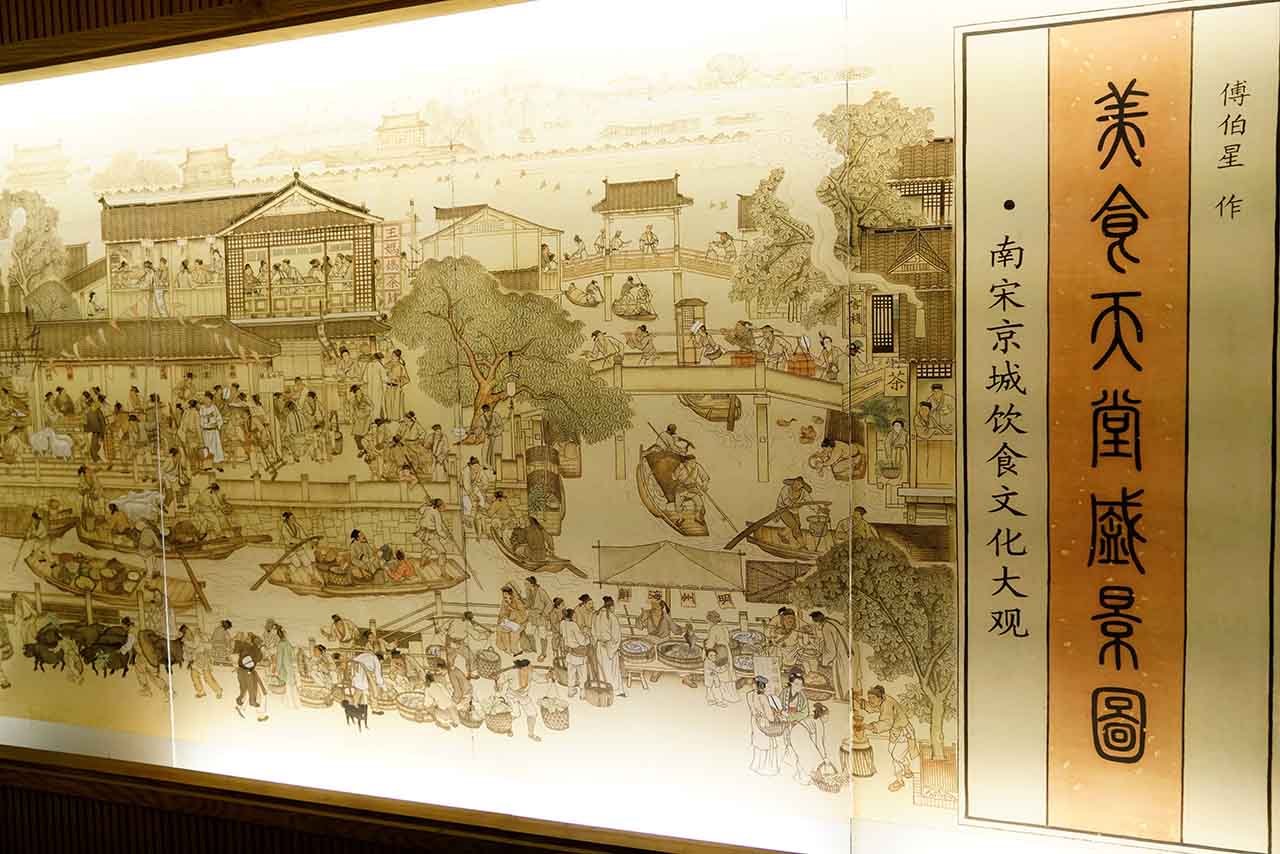 傅伯星 作
美食天堂盛景圖
•南宋京城饮食文化大观
茶